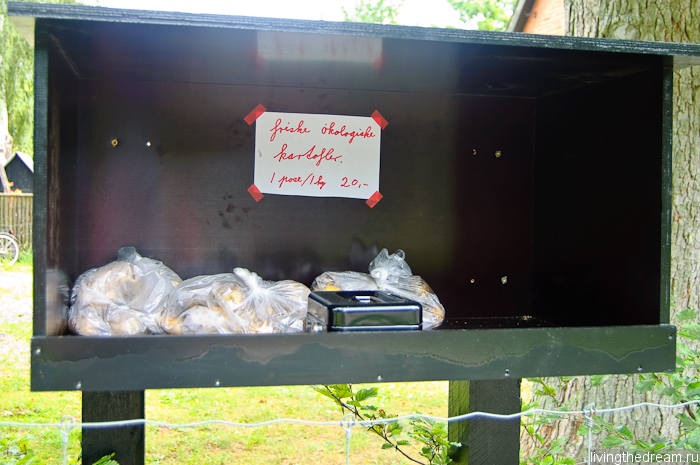 friske økologiske
kartofler.
1 pose/1 kg 20,-
livingthedream.ru